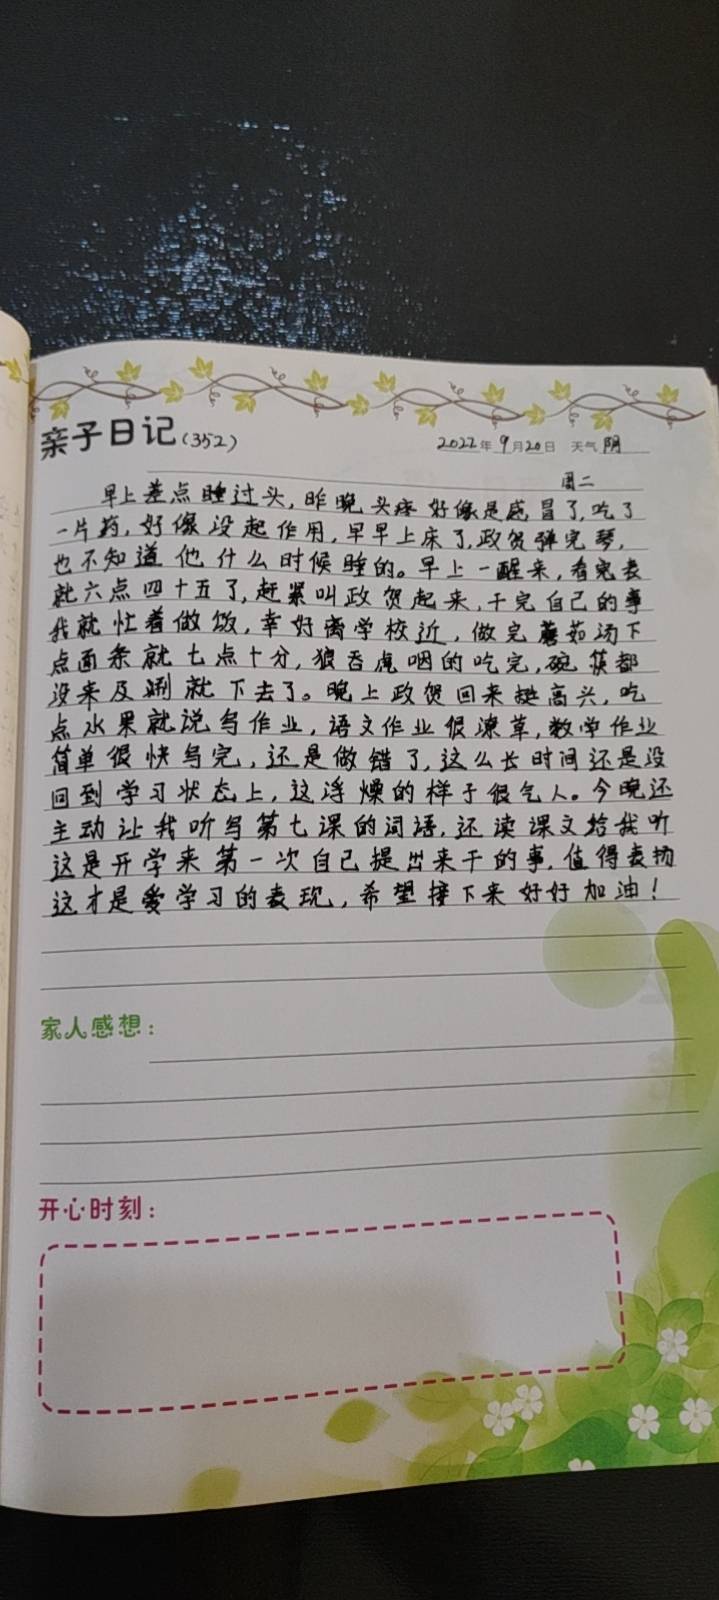 亲子日记(352) 2022年9月20日 天气阴
周二
早上差点睡过头,昨晚头疼好像是感冒了,吃了
一片药,好像没起作用,早早上床了,政贺弹完琴,
也不知道他什么时候睡的。早上一醒来,看完表
就六点四十五了,赶紧叫政贺起来,干完自己的事
我就忙着做饭,幸好离学校近,做完蘑菇汤下
点面条就七点十分,狼吞虎咽的吃完,碗筷都
没来及涮就下去了。晚上政贺回来挺高兴,吃
点水果就说写作业,语文作业很潦草,数学作业
简单很快写完,还是做错了,这么长时间还是没
回到学习状态上,这浮燥的样子很气人。今晚还
主动让我听写第七课的词语,还读课文给我听
这是开学来第一次自己提出来干的事,值得表扬
这才是爱学习的表现,希望接下来好好加油!
家人感想:
开心时刻: